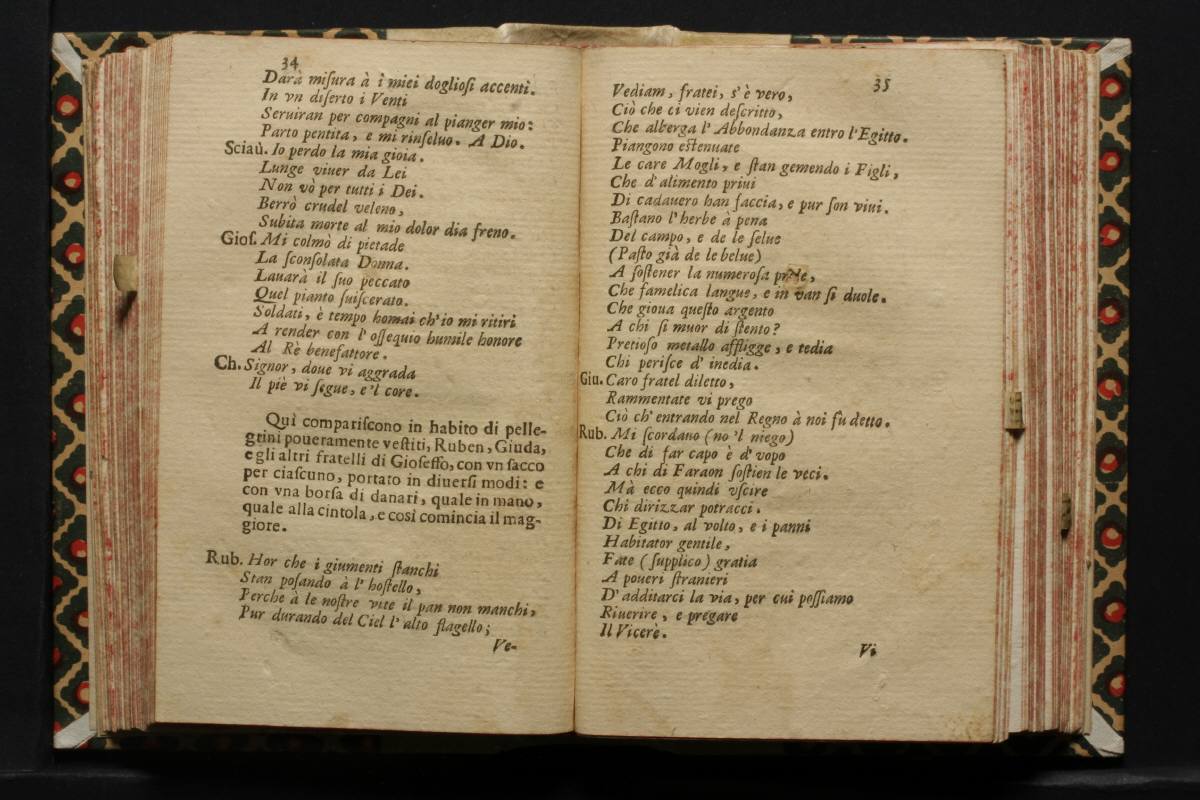 34
Darà miſura à i miei doglioſi accenti.
In vn diſerto i Venti
Seruiran per compagni al pianger mio:
Parto pentita, e mi rinſeluo. A Dio.
Sciaù. Io perdo la mia gioia.
Lunge viuer da Lei
Non vò per tutti i Dei.
Berrò crudel veleno,
Subita morte al mio dolor dia freno.
Gioſ. Mi colmò di pietade
La ſconſolata Donna.
Lauarà il ſuo peccato
Quel pianto ſuiſcerato.
Soldati, è tempo homai ch'io mi ritiri
A render con l'oſſequio humile honore
Al Rè benefattore.
Ch. Signor, doue vi aggrada
Il piè vi ſegue, e'l core.
Quì compariſcono in habito di pelle-
grini poueramente veſtiti, Ruben, Giuda,
e gli altri fratelli di Gioſeffo, con vn ſacco
per ciaſcuno, portato in diuerſi modi: e
con vna borſa di danari, quale in mano,
quale alla cintola, e così comincia il mag-
giore.
Rub. Hor che i giumenti ſtanchi
Stan poſando à l'hoſtello,
Perche à le noſtre vite il pan non manchi,
Pur durando del Ciel l'alto flagello;
Ve-
35
Vediam, fratei, s'è vero,
Ciò che ci vien deſcritto,
Che alberga l'Abbondanza entro l'Egitto.
Piangono eſtenuate
Le care Mogli, e ſtan gemendo i Figli,
Che d'alimento priui
Di cadauero han faccia, e pur ſon viui.
Baſtano l'herbe à pena
Del campo, e de le ſelue
(Paſto già de le belue)
A ſoſtener la numeroſa prole,
Che famelica langue, e in van ſi duole.
Che gioua queſto argento
A chi ſi muor di ſtento?
Pretioſo metallo affligge, e tedia
Chi periſce d'inedia.
Giu. Caro fratel diletto,
Rammentate vi prego
Ciò ch'entrando nel Regno à noi fù detto.
Rub. Mi ſcordano (no'l niego)
Che di far capo è d'vopo
A chi di Faraon ſoſtien le veci.
Mà ecco quindi vſcire
Chi dirizzar potracci.
Di Egitto, al volto, e i panni
Habitator gentile,
Fate (ſupplico) gratia
A poueri ſtranieri
D'additarci la via, per cui poſſiamo
Riuerire, e pregare
Il Vicerè.
Vi